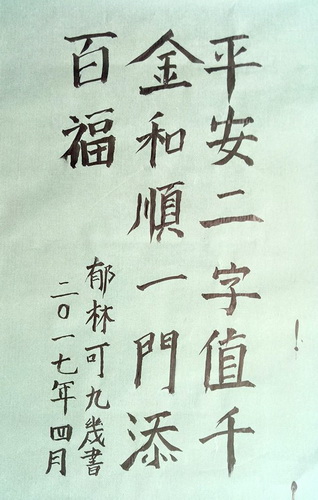 平安二字值千
金和順一門添
百福
郁林可九幾書
二〇一七年四月